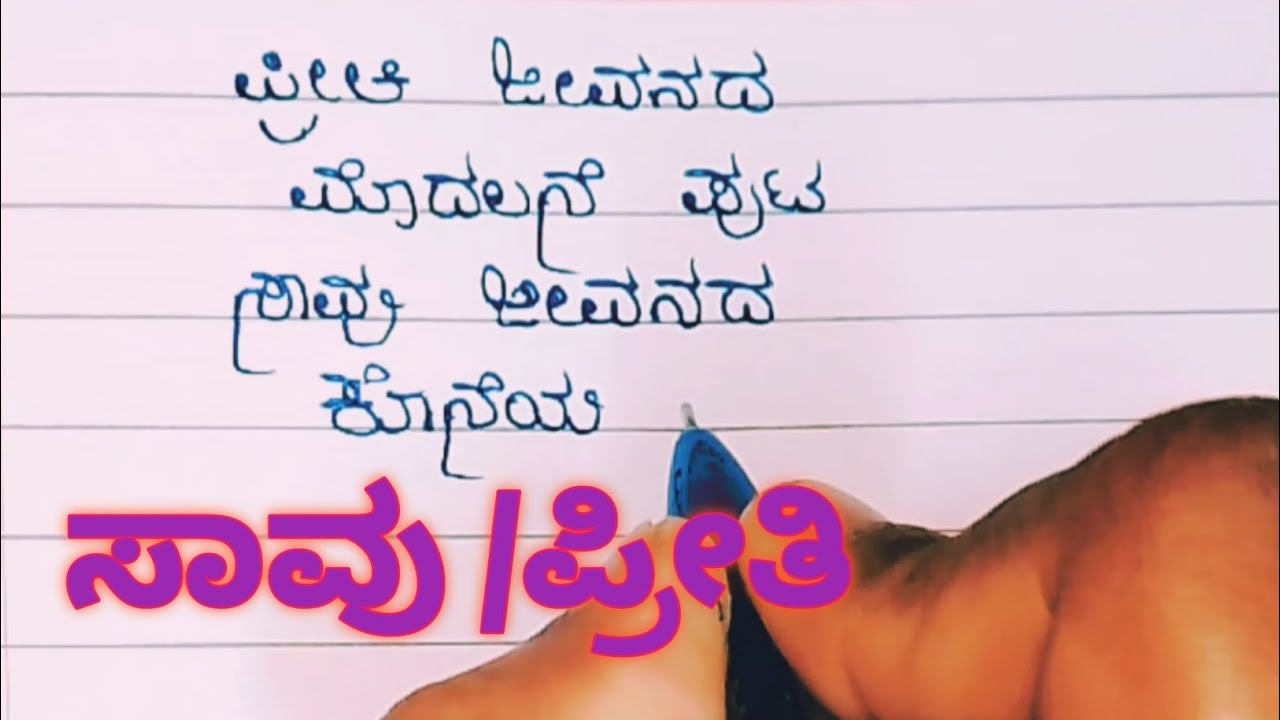 ಪ್ರೀತಿ ಜೀವನದ
ಮೊದಲನೆ ಪುಟ
ಸಾವು ಜೀವನದ
ಕೊನೆಯ
ಸಾವು/ಪ್ರೀತಿ